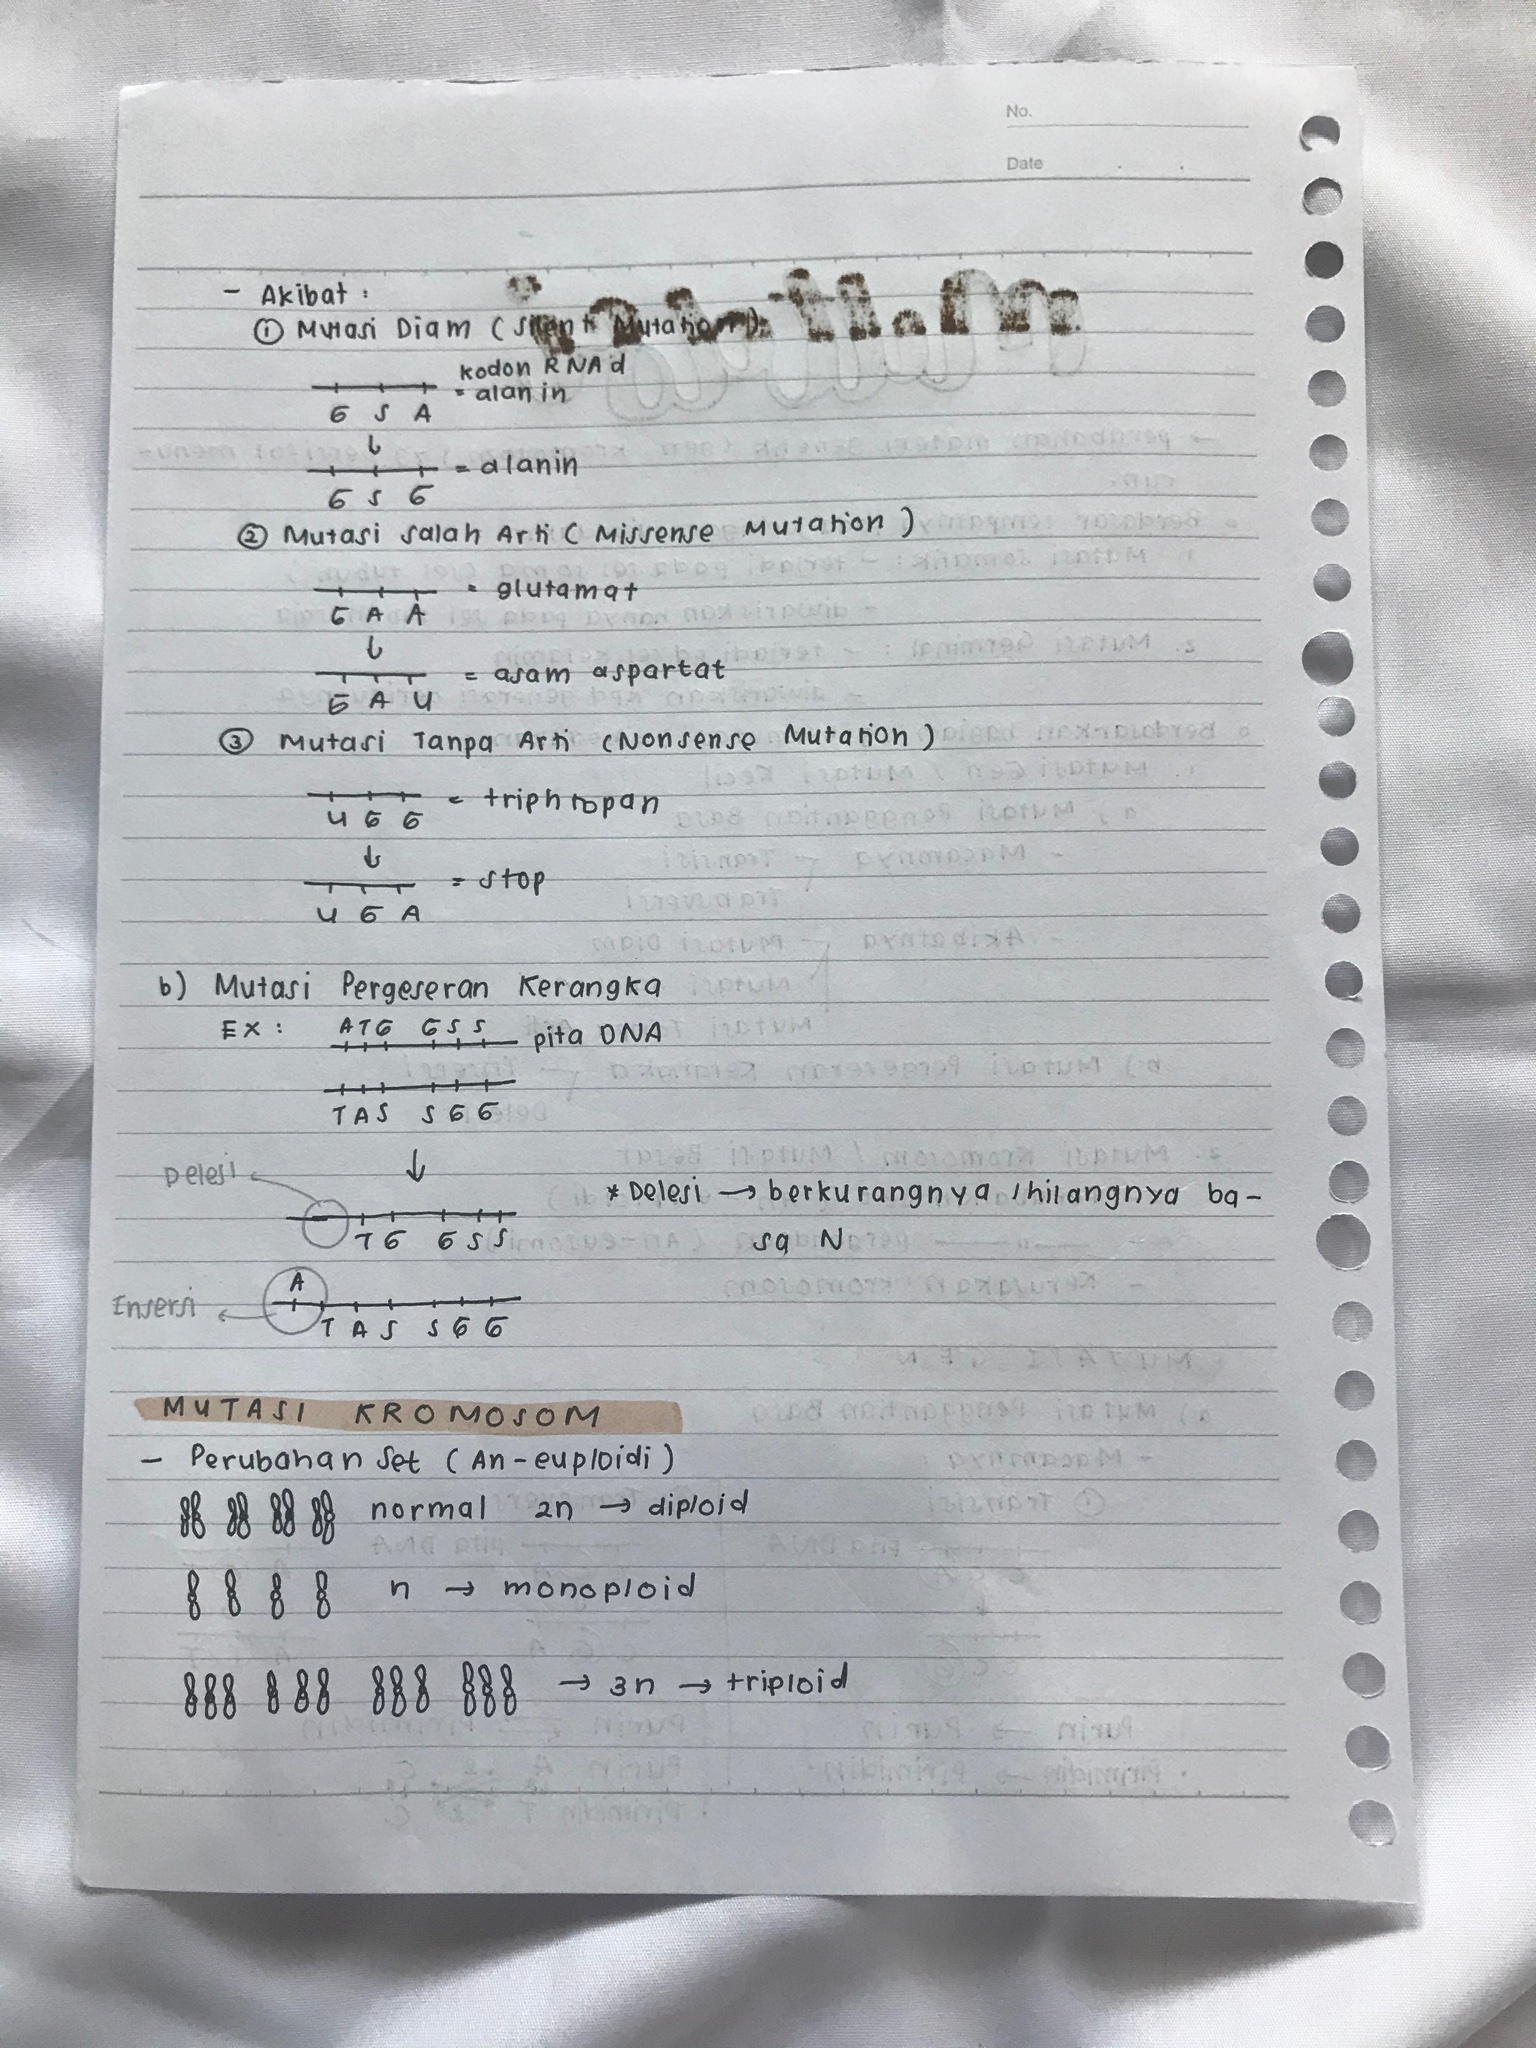 No.
Date
- Akibat :
① Mutasi Diam (Silent Mutation)
kodon RNAd
= alanin
G S A
↓
= alanin
G S G
② Mutasi Salah Arti (Missense Mutation)
= glutamat
G A A
↓
= asam aspartat
G A U
③ Mutasi Tanpa Arti (Nonsense Mutation)
= triphtopan
U G G
↓
= stop
U G A
b) Mutasi Pergeseran Kerangka
EX : ATG GSS pita DNA
TAS SGG
↓
Delesi
* Delesi → berkurangnya /hilangnya ba-
sa N
TG GSS
A
Insersi
TAS SGG
MUTASI KROMOSOM
- Perubahan Set (An-euploidi)
normal 2n → diploid
n → monoploid
→ 3n → triploid